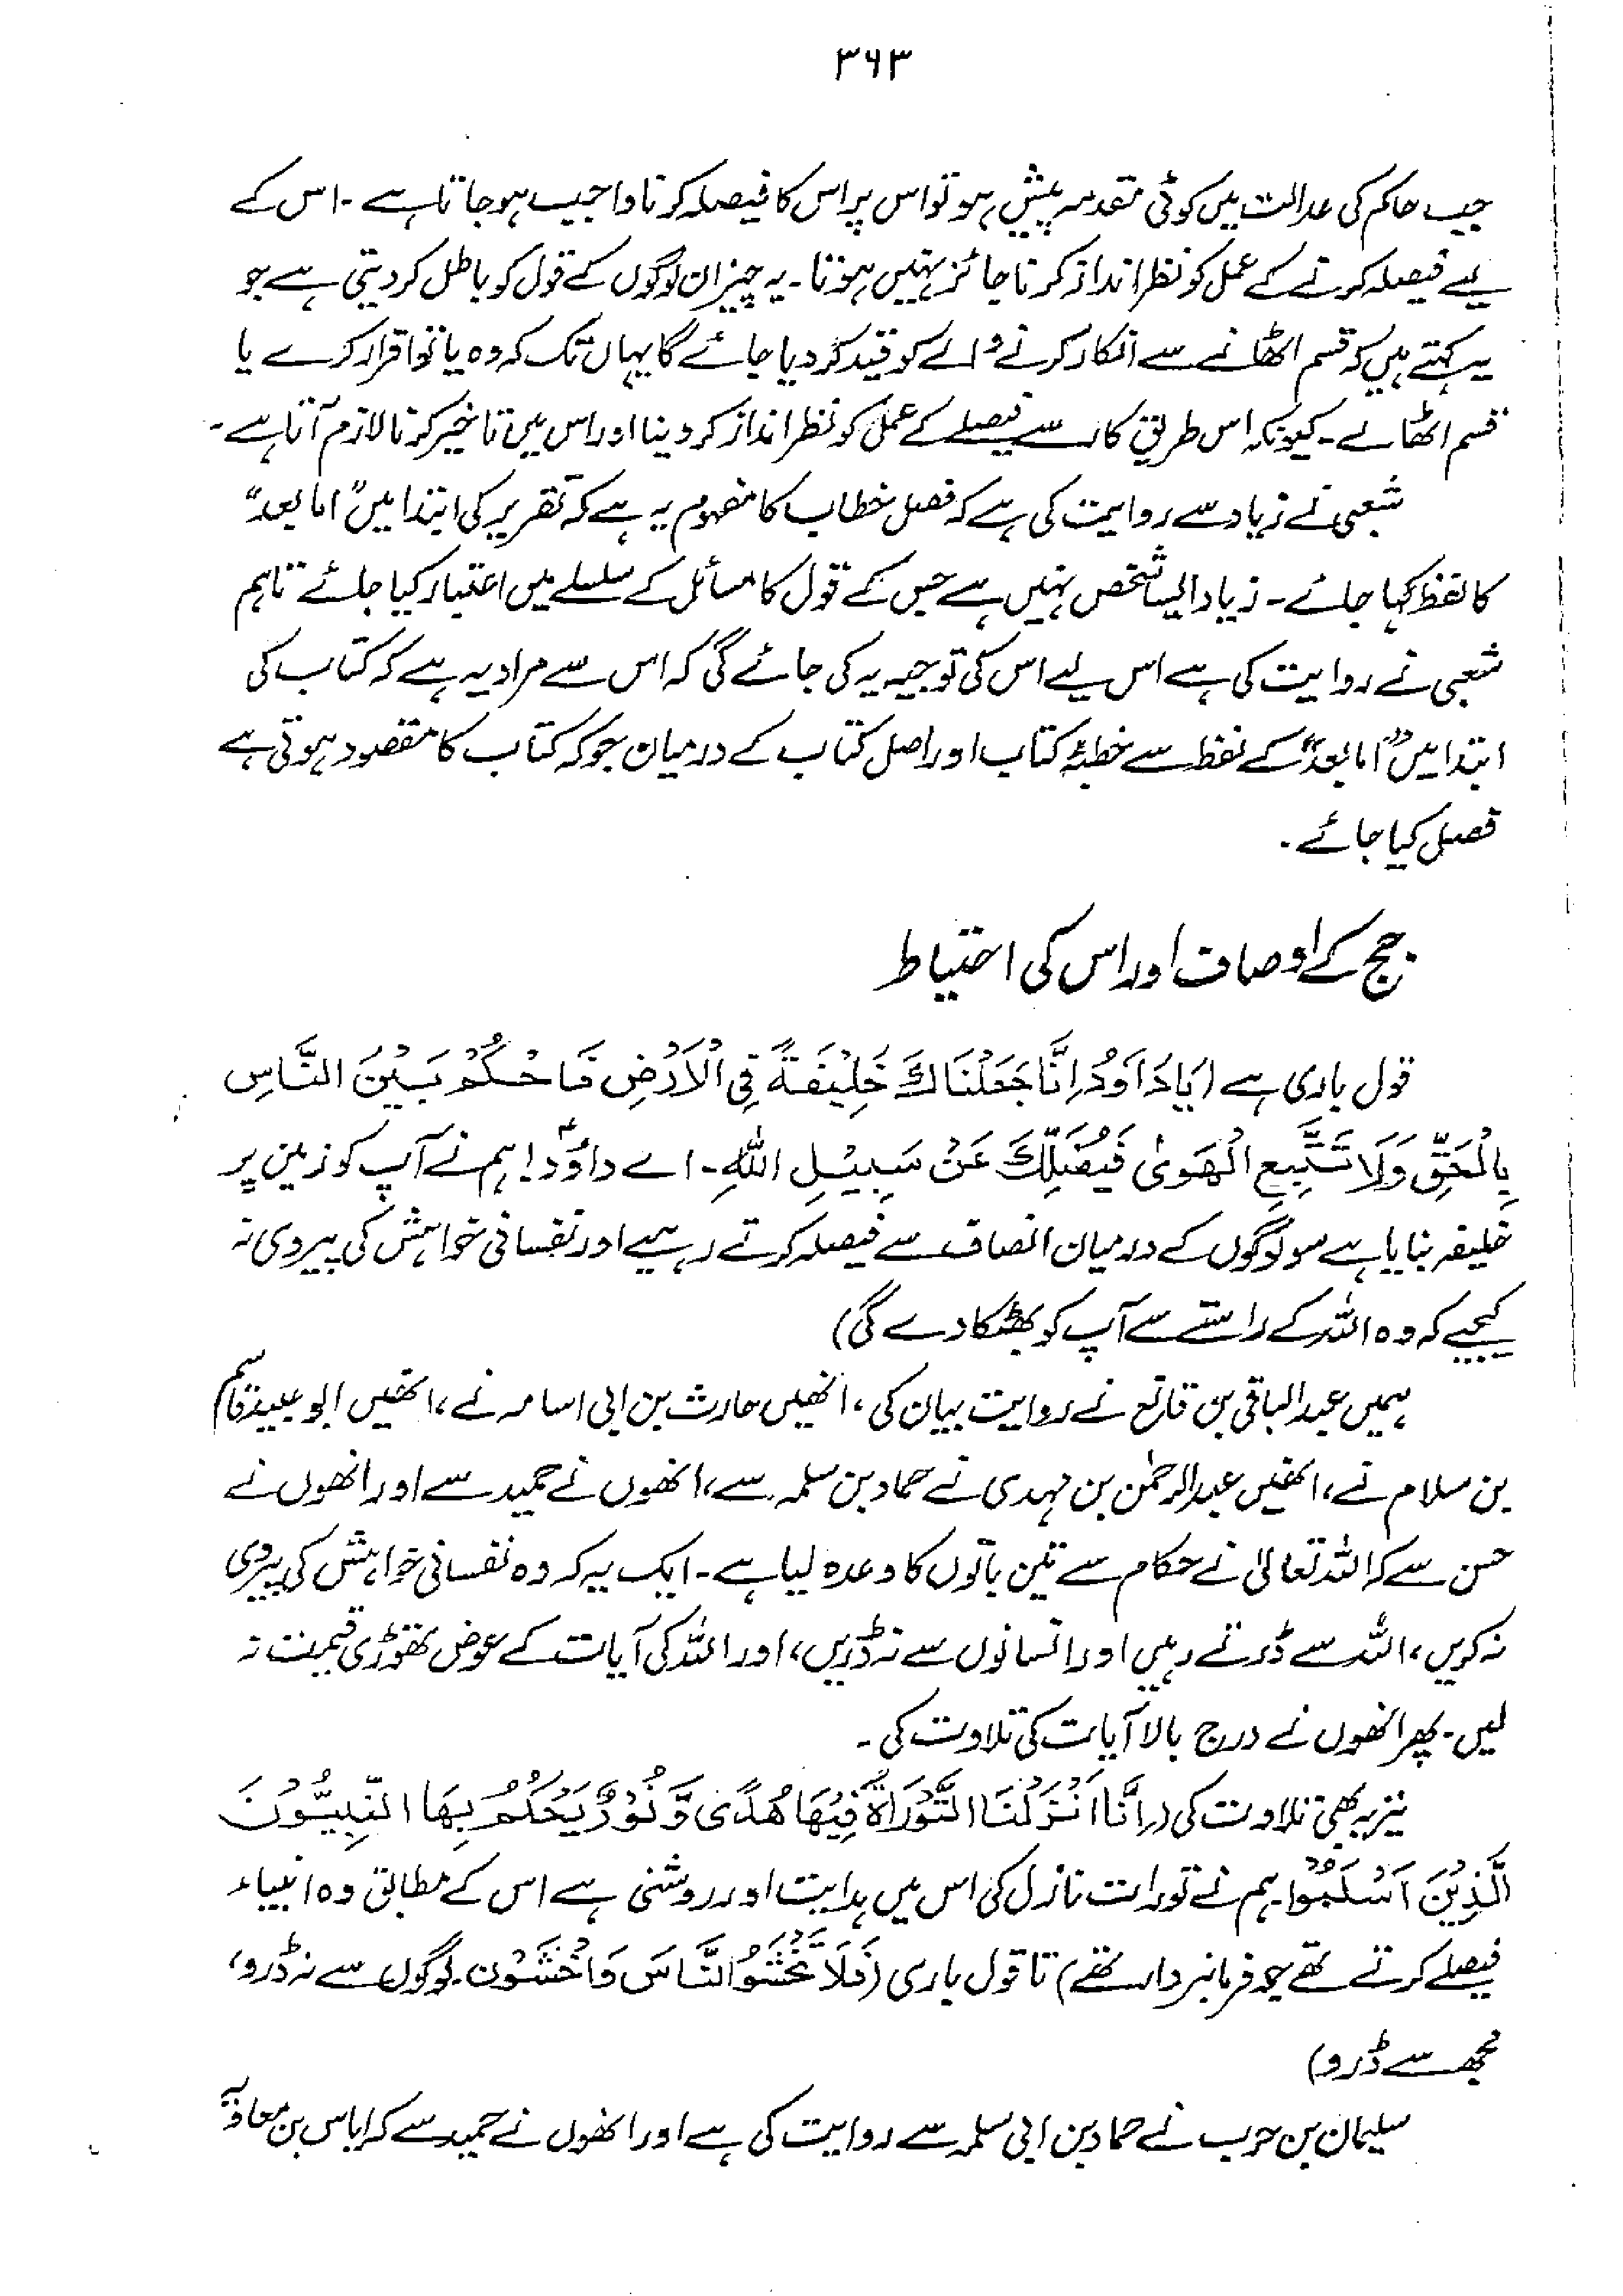 ۳۶۳
جب حاکم کی عدالت میں کوئی مقدمہ پیش ہو تو اس پر اس کا فیصلہ کرنا واجب ہو جاتا ہے ۔ اس کے
لیے فیصلہ کرنے کے عمل کو نظر انداز کرنا جائز نہیں ہوتا ۔ یہ چیز ان لوگوں کے قول کو باطل کر دیتی ہے جو
یہ کہتے ہیں کہ قسم اٹھانے سے انکار کرنے والے کو قید کر دیا جائے گا یہاں تک کہ وہ یا تو اقرار کرے یا
قسم اٹھالے ۔ کیونکہ اس طریق کار سے فیصلے کے عمل کو نظر انداز کر دینا اور اس میں تاخیر کرنا لازم آتا ہے ۔
شعبی نے زیاد سے روایت کی ہے کہ فصل خطاب کا مفہوم یہ ہے کہ تقریر کی ابتدا میں "اما بعد"
کا لفظ کہا جائے ۔ زیاد ایسا شخص نہیں ہے جس کے قول کا مسائل کے سلسلے میں اعتبار کیا جائے تاہم
شعبی نے روایت کی ہے اس لیے اس کی توجیہ یہ کی جائے گی کہ اس سے مراد یہ ہے کہ کتاب کی
ابتدا میں "اما بعد" کے لفظ سے خطبۂ کتاب اور اصل کتاب کے درمیان جو کہ کتاب کا مقصود ہوتی ہے
فصل کیا جائے ۔
جج کے اوصاف اور اس کی احتیاط
قول باری ہے (يَا دَاوٗدُ اِنَّا جَعَلْنَاكَ خَلِيْفَةً فِي الْاَرْضِ فَاحْكُمْ بَيْنَ النَّاسِ
بِالْحَقِّ وَلَا تَتَّبِعِ الْهَوٰى فَيُضِلَّكَ عَنْ سَبِيْلِ اللهِ ۔ اے داؤدؑ! ہم نے آپ کو زمین پر
خلیفہ بنایا ہے سو لوگوں کے درمیان انصاف سے فیصلہ کرتے رہیے اور نفسانی خواہش کی پیروی نہ
کیجیے کہ وہ اللہ کے راستے سے آپ کو بھٹکا دے گی)
ہمیں عبدالباقی بن قانع نے روایت بیان کی، انھیں حارث بن ابی اسامہ نے، انھیں ابو عبید قاسم
بن سلام نے، انھیں عبدالرحمٰن بن مہدی نے حماد بن سلمہ سے، انھوں نے حمید سے اور انھوں نے
حسن سے کہ اللہ تعالیٰ نے حکام سے تین باتوں کا وعدہ لیا ہے ۔ ایک یہ کہ وہ نفسانی خواہش کی پیروی
نہ کریں، اللہ سے ڈرتے رہیں اور انسانوں سے نہ ڈریں، اور اللہ کی آیات کے عوض تھوڑی قیمت نہ
لیں ۔ پھر انھوں نے درج بالا آیات کی تلاوت کی ۔
نیز یہ بھی تلاوت کی (اِنَّا اَنْزَلْنَا التَّوْرَاةَ فِيْهَا هُدًى وَّنُوْرٌ يَحْكُمُ بِهَا النَّبِيُّوْنَ
الَّذِيْنَ اَسْلَمُوْا ۔ ہم نے تورات نازل کی اس میں ہدایت اور روشنی ہے اس کے مطابق وہ انبیاء
فیصلے کرتے تھے جو فرمانبردار تھے) تا قول باری (فَلَا تَخْشَوُا النَّاسَ وَاخْشَوْنِ ۔ لوگوں سے نہ ڈرو،
مجھ سے ڈرو)
سلیمان بن حرب نے حماد بن ابی سلمہ سے روایت کی ہے اور انھوں نے حمید سے کہ ایاس بن معاویہؒ